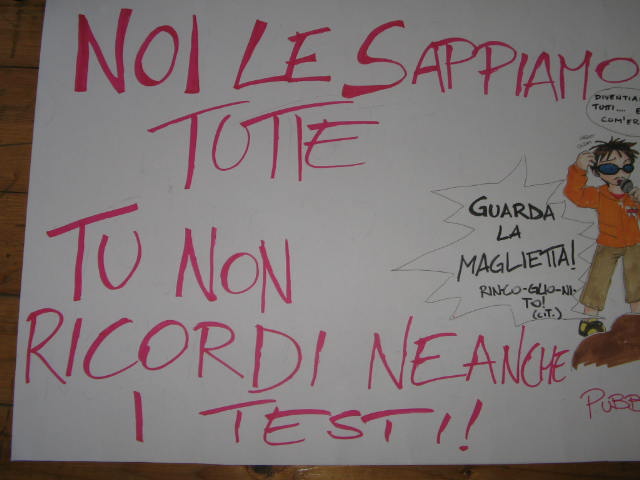 NOI LE SAPPIAMO
TUTTE
DIVENTIA
TUTTI.... E
COM'ER
GUARDA
LA
MAGLIETTA!
RINCO-GLIO-NI-
TO!
(CIT.)
TU NON
RICORDI NEANCHE
I TESTI!!
PUBB